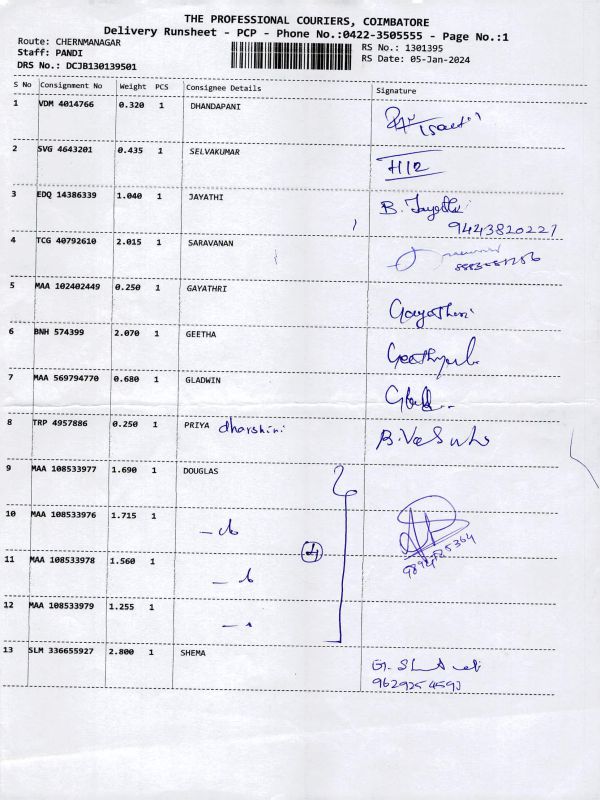 THE PROFESSIONAL COURIERS, COIMBATORE
Delivery Runsheet - PCP - Phone No.:0422-3505555 - Page No.:1
Route: CHERNMANAGAR
Staff: PANDI
DRS No.: DCJB130139501
RS No.: 1301395
RS Date: 05-Jan-2024
S No Consignment No Weight PCS Consignee Details Signature
1 VDM 4014766 0.320 1 DHANDAPANI
2 SVG 4643201 0.435 1 SELVAKUMAR
3 EDQ 14386339 1.040 1 JAYATHI B. Jayathi
9443820227
4 TCG 40792610 2.015 1 SARAVANAN
5 MAA 102402449 0.250 1 GAYATHRI Gayathri
6 BNH 574399 2.070 1 GEETHA
7 MAA 569794770 0.680 1 GLADWIN
8 TRP 4957886 0.250 1 PRIYA dharshini B.Vasu
9 MAA 108533977 1.690 1 DOUGLAS
10 MAA 108533976 1.715 1
11 MAA 108533978 1.560 1 4
12 MAA 108533979 1.255 1
13 SLM 336655927 2.800 1 SHEMA